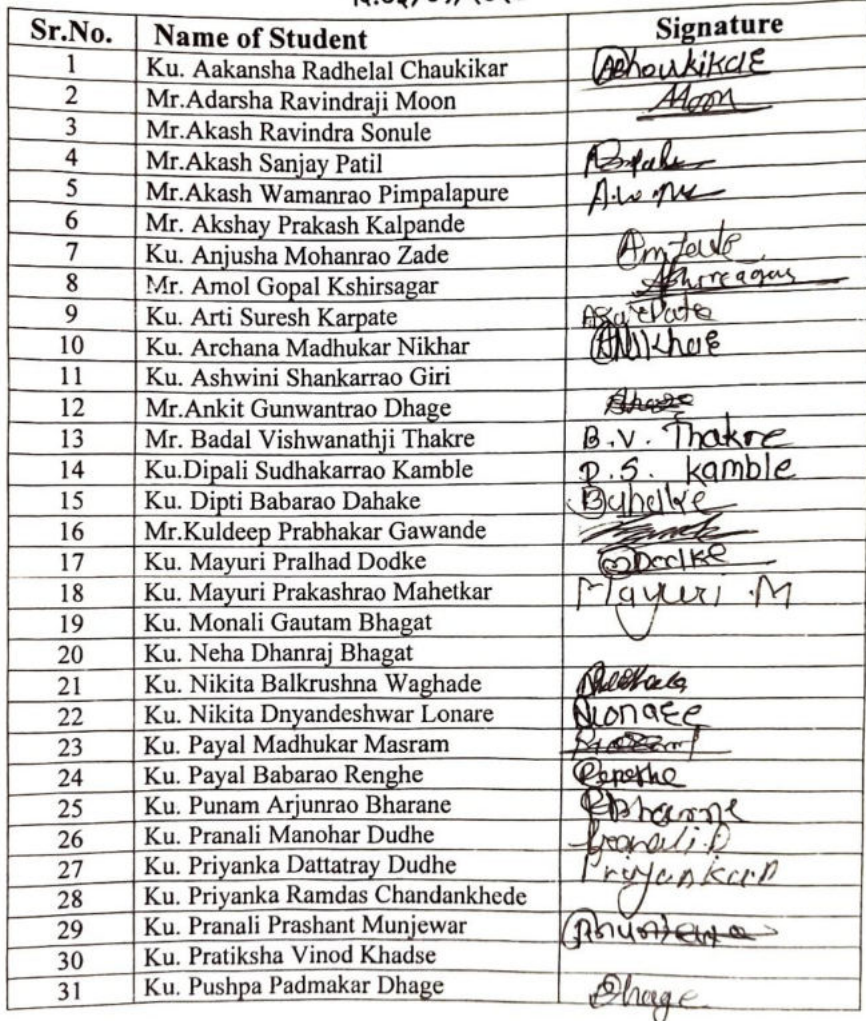 Sr.No. Name of Student Signature
1 Ku. Aakansha Radhelal Chaukikar
2 Mr.Adarsha Ravindraji Moon Moon
3 Mr.Akash Ravindra Sonule
4 Mr.Akash Sanjay Patil
5 Mr.Akash Wamanrao Pimpalapure
6 Mr. Akshay Prakash Kalpande
7 Ku. Anjusha Mohanrao Zade
8 Mr. Amol Gopal Kshirsagar
9 Ku. Arti Suresh Karpate
10 Ku. Archana Madhukar Nikhar
11 Ku. Ashwini Shankarrao Giri
12 Mr.Ankit Gunwantrao Dhage
13 Mr. Badal Vishwanathji Thakre B.V. Thakre
14 Ku.Dipali Sudhakarrao Kamble D.S. kamble
15 Ku. Dipti Babarao Dahake
16 Mr.Kuldeep Prabhakar Gawande
17 Ku. Mayuri Pralhad Dodke
18 Ku. Mayuri Prakashrao Mahetkar Mayuri .M
19 Ku. Monali Gautam Bhagat
20 Ku. Neha Dhanraj Bhagat
21 Ku. Nikita Balkrushna Waghade
22 Ku. Nikita Dnyandeshwar Lonare
23 Ku. Payal Madhukar Masram
24 Ku. Payal Babarao Renghe
25 Ku. Punam Arjunrao Bharane
26 Ku. Pranali Manohar Dudhe Pranali.D
27 Ku. Priyanka Dattatray Dudhe
28 Ku. Priyanka Ramdas Chandankhede
29 Ku. Pranali Prashant Munjewar
30 Ku. Pratiksha Vinod Khadse
31 Ku. Pushpa Padmakar Dhage Dhage